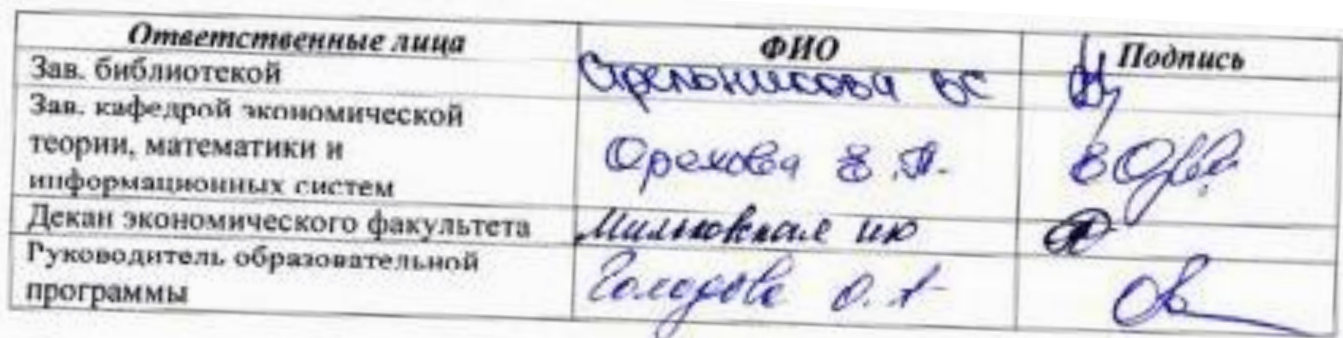 Ответственные лица ФИО Подпись
Зав. библиотекой Стрельникова ВС
Зав. кафедрой экономической
теории, математики и
информационных систем Орехова Е.А.
Декан экономического факультета ИЮ
Руководитель образовательной
программы О.А